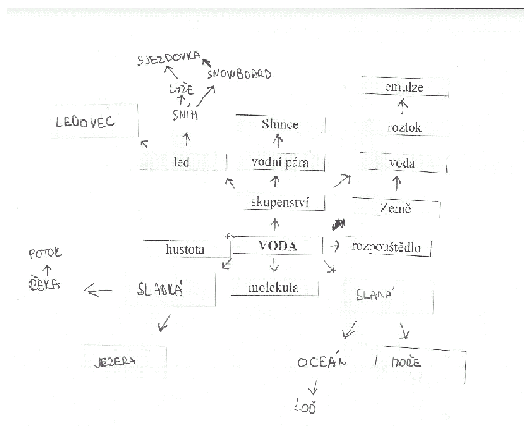 SJEZDOVKA
SNOWBOARD
LYŽE
emulze
LEDOVEC
SNÍH
Slunce
roztok
led
vodní pára
voda
skupenství
Země
hustota
VODA
rozpouštědlo
POTOK
ŘEKA
SLADKÁ
molekula
SLANÁ
JEZERA
OCEÁN
MOŘE
LOĎ